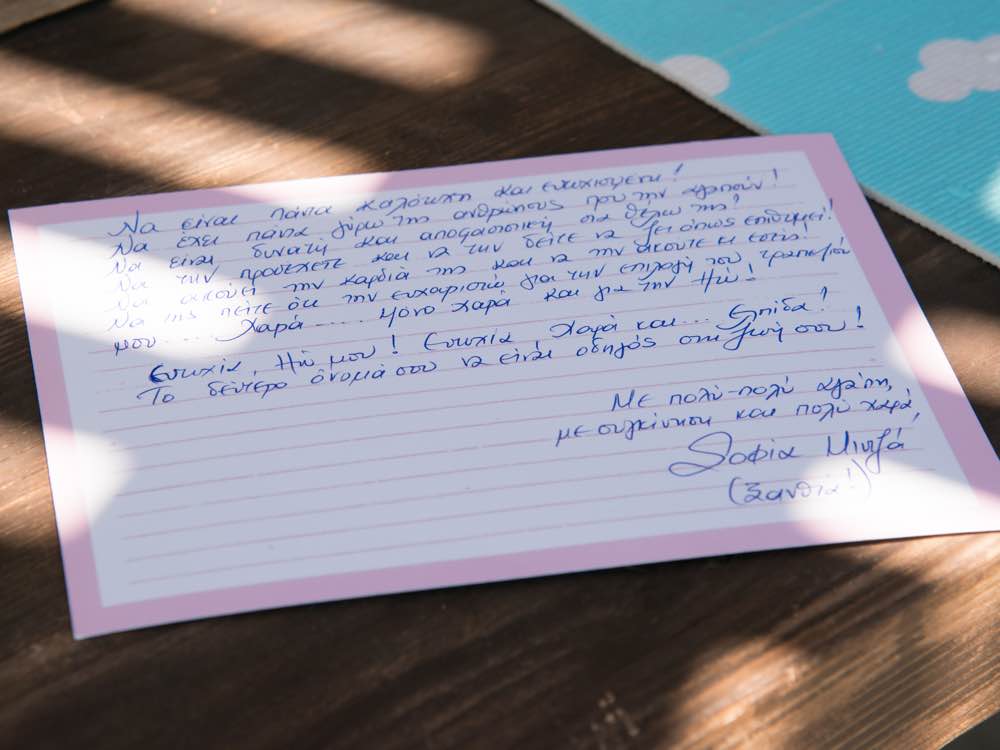 Να είναι πάντα καλότυχη και ευτυχισμένη!
Να έχει πάντα γύρω της ανθρώπους που την αγαπούν!
Να είναι δυνατή και αποφασιστική στα θέλω της!
Να την προσέχετε και να την δείτε να ζει όπως επιθυμεί!
Να ακούει την καρδιά της και να την ακούτε κι εσείς!
Να της πείτε ότι την ευχαριστώ για την επιλογή του τραγουδιού
μου.... Χαρά.... μόνο χαρά και για την Ηώ!
Ευτυχία, Ηώ μου! Ευτυχία, χαρά και... Ελπίδα!
Το δεύτερο όνομά σου να είναι οδηγός στη ζωή σου!
Με πολύ-πολύ αγάπη,
με συγκίνηση και πολύ χαρά,
Σοφία
(Ξανθιά!)